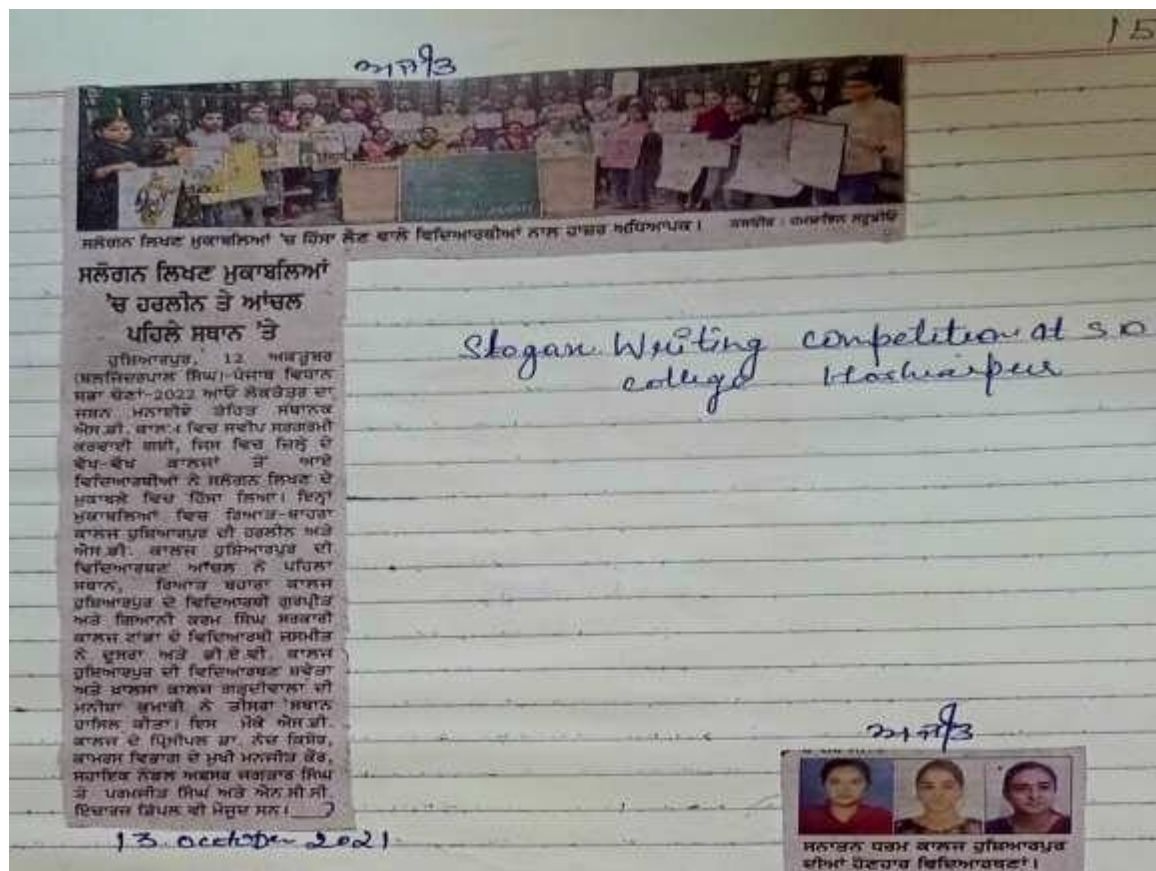 15
ਅਜੀਤ
ਸਲੋਗਨ ਲਿਖਣ ਮੁਕਾਬਲਿਆਂ 'ਚ ਹਿੱਸਾ ਲੈਣ ਵਾਲੇ ਵਿਦਿਆਰਥੀਆਂ ਨਾਲ ਹਾਜ਼ਰ ਅਧਿਆਪਕ। ਤਸਵੀਰ :
ਸਲੋਗਨ ਲਿਖਣ ਮੁਕਾਬਲਿਆਂ
'ਚ ਹਰਲੀਨ ਤੇ ਆਂਚਲ
ਪਹਿਲੇ ਸਥਾਨ 'ਤੇ
ਹੁਸ਼ਿਆਰਪੁਰ, 12 ਅਕਤੂਬਰ
(ਬਲਜਿੰਦਰਪਾਲ ਸਿੰਘ)-ਪੰਜਾਬ ਵਿਧਾਨ
ਸਭਾ ਚੋਣਾਂ-2022 ਆਓ ਲੋਕਤੰਤਰ ਦਾ
ਜਸ਼ਨ ਮਨਾਈਏ ਤਹਿਤ ਸਥਾਨਕ
ਐਸ.ਡੀ. ਕਾਲਜ ਵਿਚ ਸਵੀਪ ਸਰਗਰਮੀ
ਕਰਵਾਈ ਗਈ, ਜਿਸ ਵਿਚ ਜ਼ਿਲ੍ਹੇ ਦੇ
ਵੱਖ-ਵੱਖ ਕਾਲਜਾਂ ਤੋਂ ਆਏ
ਵਿਦਿਆਰਥੀਆਂ ਨੇ ਸਲੋਗਨ ਲਿਖਣ ਦੇ
ਮੁਕਾਬਲੇ ਵਿਚ ਹਿੱਸਾ ਲਿਆ। ਇਨ੍ਹਾਂ
ਮੁਕਾਬਲਿਆਂ ਵਿਚ ਰਿਆਤ-ਬਾਹਰਾ
ਕਾਲਜ ਹੁਸ਼ਿਆਰਪੁਰ ਦੀ ਹਰਲੀਨ ਅਤੇ
ਐਸ.ਡੀ. ਕਾਲਜ ਹੁਸ਼ਿਆਰਪੁਰ ਦੀ
ਵਿਦਿਆਰਥਣ ਆਂਚਲ ਨੇ ਪਹਿਲਾ
ਸਥਾਨ, ਰਿਆਤ ਬਹਾਰਾ ਕਾਲਜ
ਹੁਸ਼ਿਆਰਪੁਰ ਦੇ ਵਿਦਿਆਰਥੀ ਗੁਰਪ੍ਰੀਤ
ਅਤੇ ਗਿਆਨੀ ਕਰਮ ਸਿੰਘ ਸਰਕਾਰੀ
ਕਾਲਜ ਟਾਂਡਾ ਦੇ ਵਿਦਿਆਰਥੀ ਜਸਮੀਤ
ਨੇ ਦੂਸਰਾ ਅਤੇ ਡੀ.ਏ.ਵੀ. ਕਾਲਜ
ਹੁਸ਼ਿਆਰਪੁਰ ਦੀ ਵਿਦਿਆਰਥਣ ਸ਼ਵੇਤਾ
ਅਤੇ ਖ਼ਾਲਸਾ ਕਾਲਜ ਗੜ੍ਹਦੀਵਾਲਾ ਦੀ
ਮਨੀਸ਼ਾ ਕੁਮਾਰੀ ਨੇ ਤੀਸਰਾ ਸਥਾਨ
ਹਾਸਿਲ ਕੀਤਾ। ਇਸ ਮੌਕੇ ਐਸ.ਡੀ.
ਕਾਲਜ ਦੇ ਪ੍ਰਿੰਸੀਪਲ ਡਾ. ਨੰਦ ਕਿਸ਼ੋਰ,
ਕਾਮਰਸ ਵਿਭਾਗ ਦੇ ਮੁਖੀ ਮਨਜੀਤ ਕੌਰ,
ਸਹਾਇਕ ਨੋਡਲ ਅਫ਼ਸਰ ਜਗਤਾਰ ਸਿੰਘ
ਤੇ ਪਰਮਜੀਤ ਸਿੰਘ ਅਤੇ ਐਨ.ਸੀ.ਸੀ.
ਇੰਚਾਰਜ ਡਿੰਪਲ ਵੀ ਮੌਜੂਦ ਸਨ।
13 october 2021
Slogan Writing competition at S D
college Hoshiarpur
ਅਜੀਤ
ਸਨਾਤਨ ਧਰਮ ਕਾਲਜ ਹੁਸ਼ਿਆਰਪੁਰ
ਦੀਆਂ ਹੋਣਹਾਰ ਵਿਦਿਆਰਥਣਾਂ।